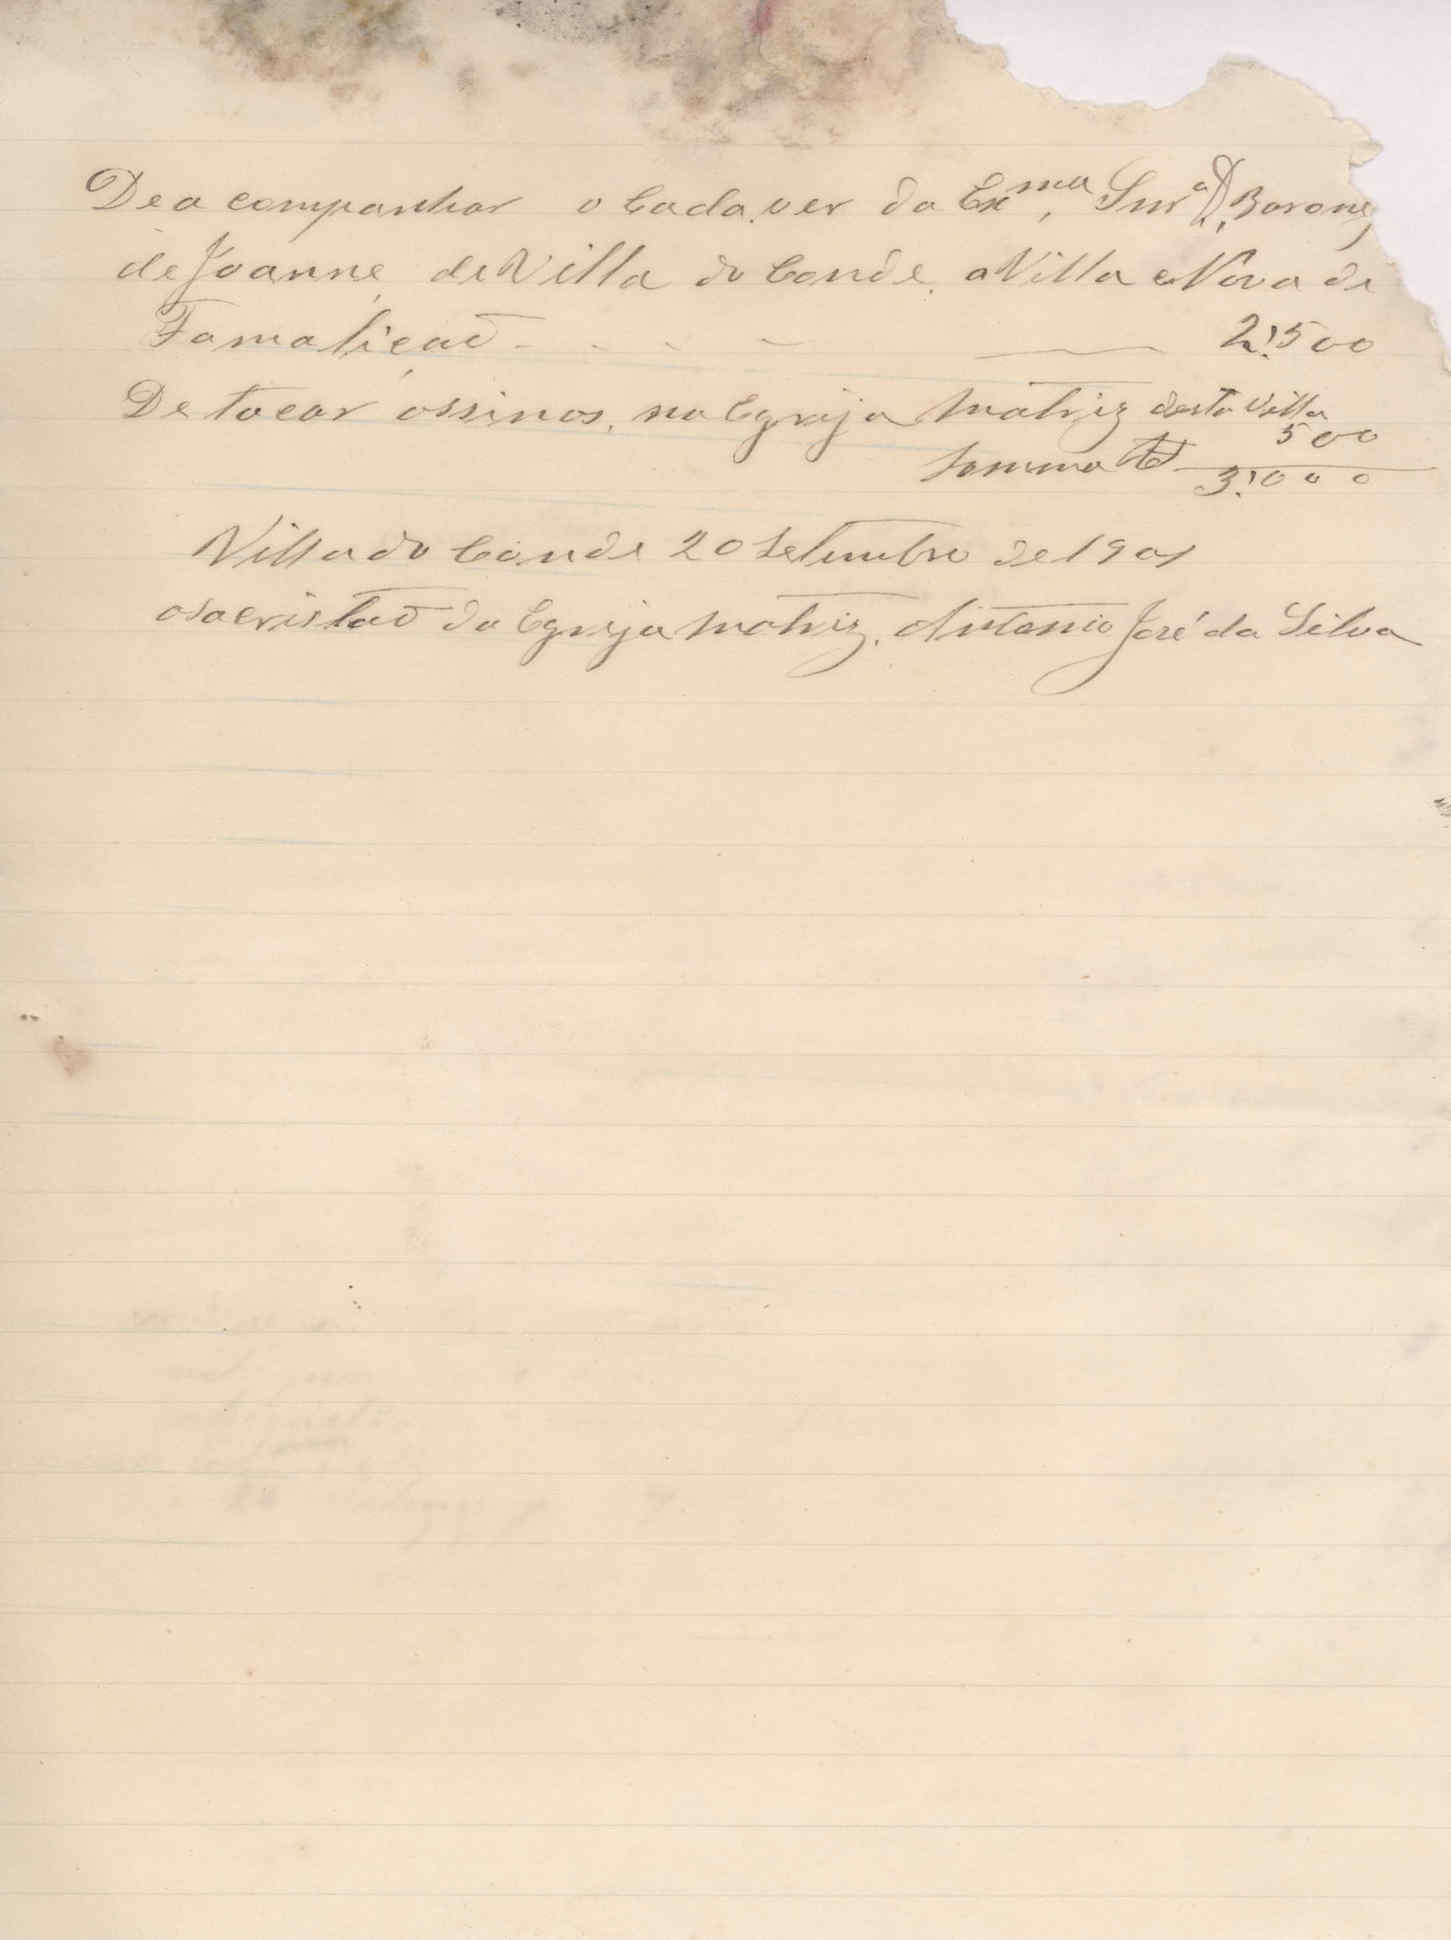 De a companhar o Cadaver da Ex.ma Snr.a D. Baronez
de Joanne, de Villa do Conde, a Villa Nova de
Famalicaõ - - - - 2!500
De tocar ossinos, na Egreja Matriz desta Villa
500
Somma 3!000
Villa do Conde 20 Setembro de 1901
o sacristaõ da Egreja Matriz, Antonio José da Silva